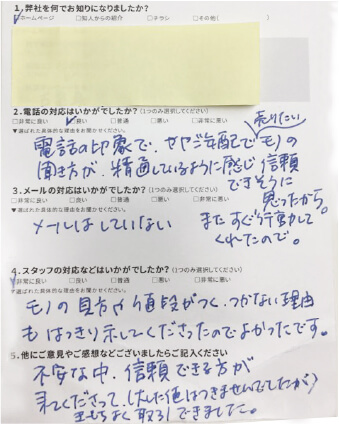 1.弊社を何でお知りになりましたか?
☑ホームページ □知人からの紹介 □チラシ □その他( )
2.電話の対応はいかがでしたか?(1つのみ選択してください)
□非常に良い ☑良い □普通 □悪い □非常に悪い
▼選ばれた具体的な理由をお聞かせください。
売りたい
電話の印象で、やや年配でモノの
聞き方が、精通しているように感じ信頼
できそうに
思ったから。
3.メールの対応はいかがでしたか?(1つのみ選択してください)
□非常に良い □良い □普通 □悪い □非常に悪い
▼選ばれた具体的な理由をお聞かせください。
メールはしていない
またすぐ行動して
くれたので。
4.スタッフの対応などはいかがでしたか?(1つのみ選択してください)
☑非常に良い □良い □普通 □悪い □非常に悪い
▼選ばれた具体的な理由をお聞かせください。
モノの見方や値段がつく、つかない理由
もはっきり示してくださったのでよかったです。
5.他にご意見やご感想などございましたらご記入ください
不安な中、信頼できる方が
来てくださって、(値はつきませんでしたが)
気もちよく取引できました。